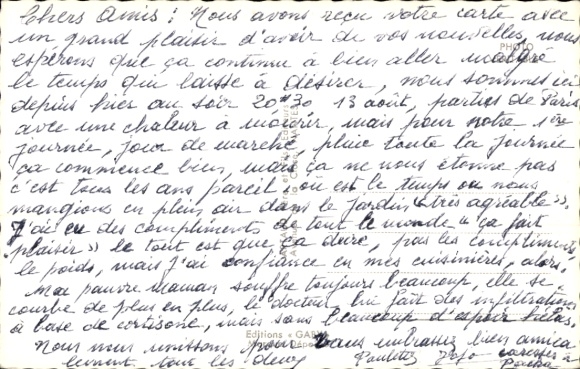 Chers Amis : Nous avons reçu votre carte avec
un grand plaisir d'avoir de vos nouvelles, nous
espérons que ça continue à bien aller malgré
PHOTO
le temps qui laisse à désirer, nous sommes ici
depuis hier au soir 20H30 13 août, partis de Paris
avec une chaleur à mourir, mais pour notre 1ère
journée, jour de marché, pluie toute la journée
ça commence bien, mais ça ne nous étonne pas
c'est tous les ans pareil : où est le temps ou nous
mangions en plein air dans le jardin « très agréable ».
J'ai eu des compliments de tout le monde « ça fait
plaisir » le tout est que ça dure, pas les compliments,
le poids, mais j'ai confiance en mes cuisinières, alors,
Ma pauvre maman souffre toujours beaucoup, elle se
courbe de plus en plus, le docteur lui fait des infiltrations
à base de cortisone, mais sans beaucoup d'espoir hélas,
Editions « GABY »
Nous nous unissons pour vous embrasser bien amica
lement tout les deux
Paulette Jojo caresses à